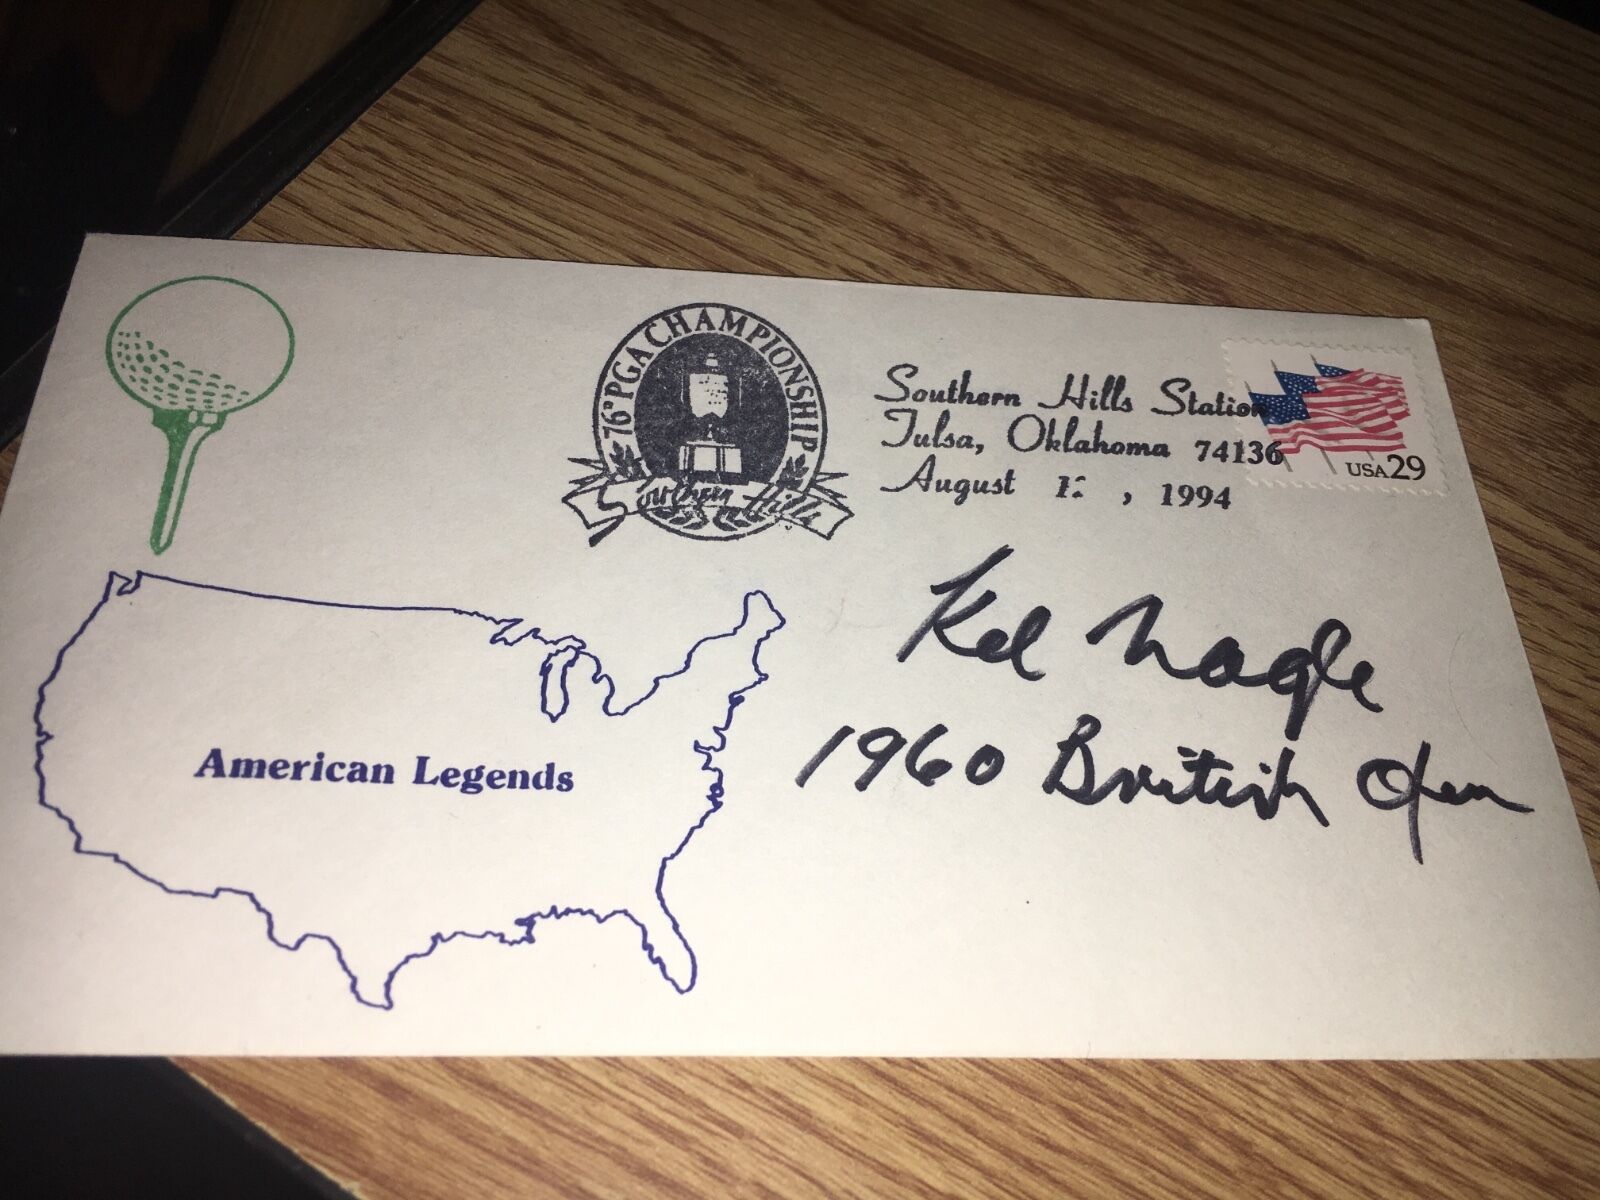 76th PGA CHAMPIONSHIP
Southern Hills
Southern Hills Station
Tulsa, Oklahoma 74136
August , 1994
USA 29
Kel Nagle
1960 British Open
American Legends